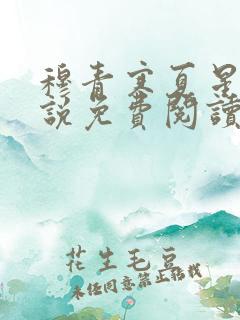 穆青寒夏星
說免費閱讀
花生毛豆
未经同意禁止搭栈